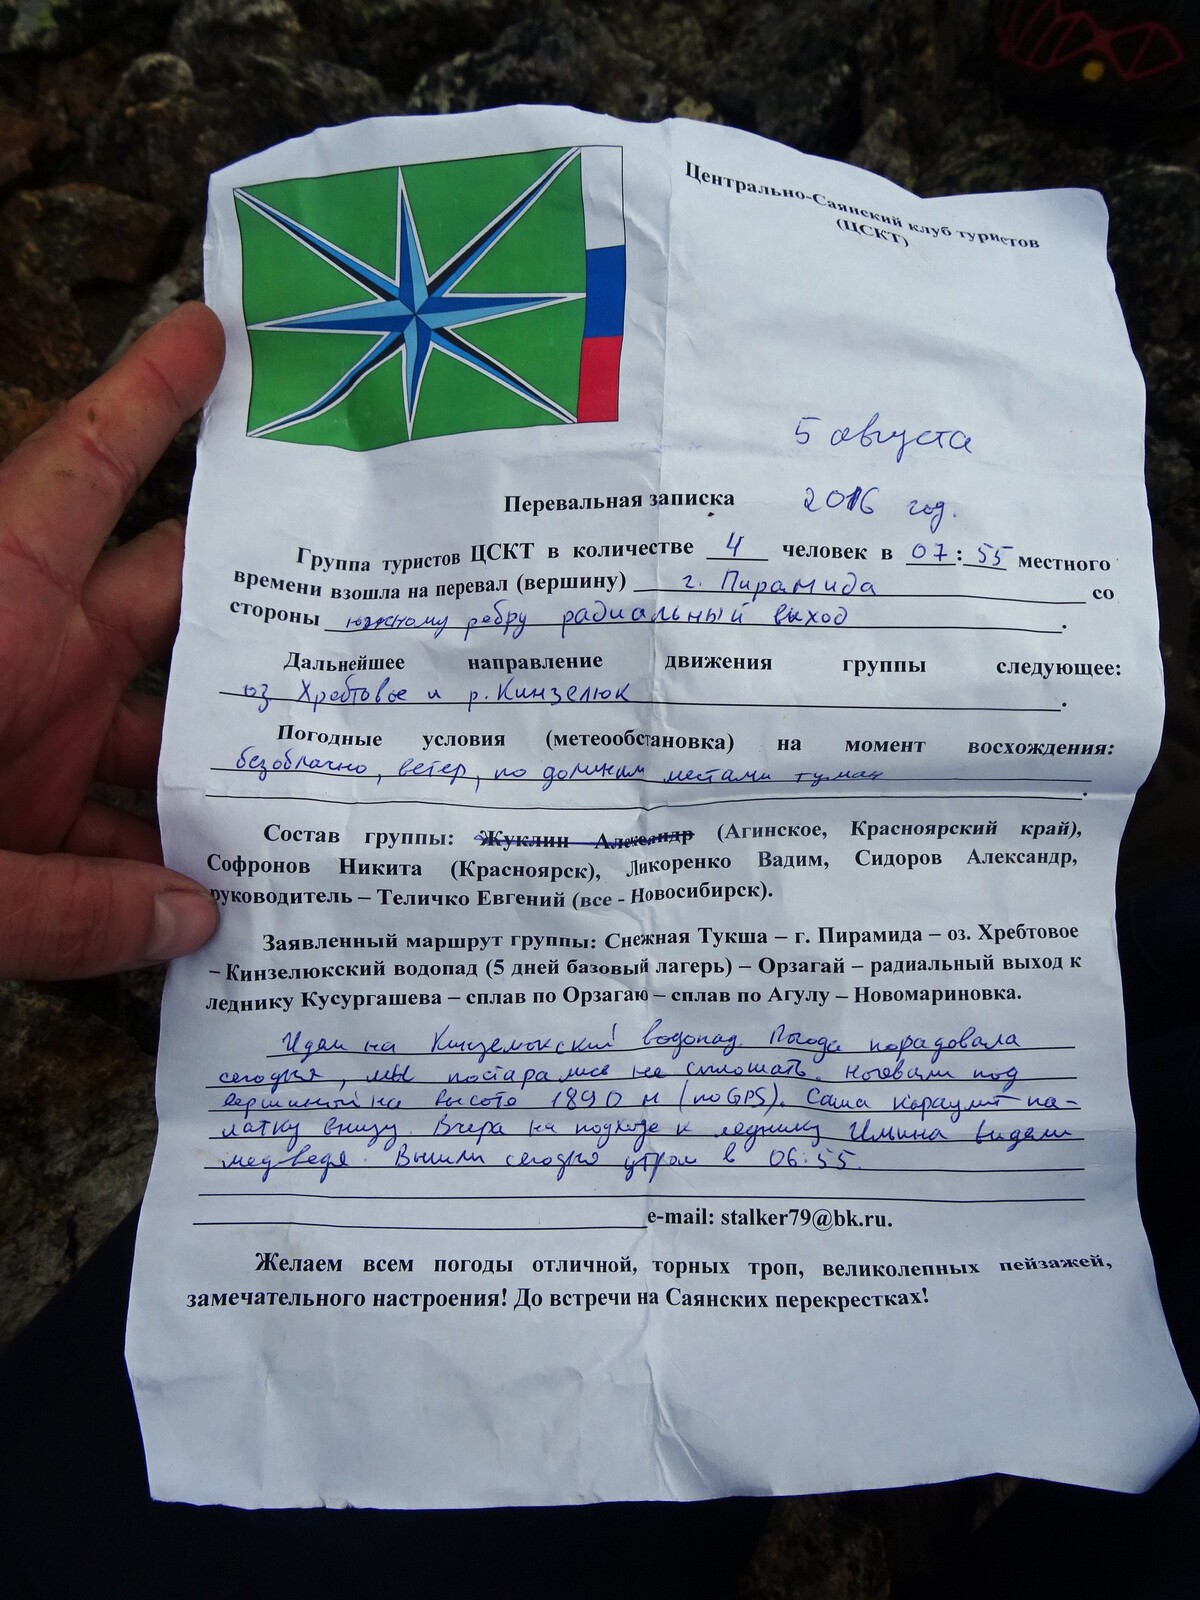 Центрально-Саянский клуб туристов
(ЦСКТ)
5 августа
Перевальная записка 2016 год.
Группа туристов ЦСКТ в количестве 4 человек в 07:55 местного
времени взошла на перевал (вершину) г. Пирамида со
стороны южному ребру радиальный выход.
Дальнейшее направление движения группы следующее:
оз Хребтовое и р. Кинзелюк.
Погодные условия (метеообстановка) на момент восхождения:
безоблачно, ветер, по долинам местами туман.
Состав группы: Жуклин Александр (Агинское, Красноярский край),
Софронов Никита (Красноярск), Ликоренко Вадим, Сидоров Александр,
руководитель – Теличко Евгений (все - Новосибирск).
Заявленный маршрут группы: Снежная Тукша – г. Пирамида – оз. Хребтовое
– Кинзелюкский водопад (5 дней базовый лагерь) – Орзагай – радиальный выход к
леднику Кусургашева – сплав по Орзагаю – сплав по Агулу – Новомариновка.
Идем на Кинзелюкский водопад. Погода порадовала
сегодня, мы постарались не сплошать. Ночевали под
вершиной на высоте 1890 м (по GPS). Саша караулит па-
латку внизу. Вчера на подходе к леднику Ильина видели
медведя. Вышли сегодня утром в 06:55.
e-mail: stalker79@bk.ru.
Желаем всем погоды отличной, торных троп, великолепных пейзажей,
замечательного настроения! До встречи на Саянских перекрестках!